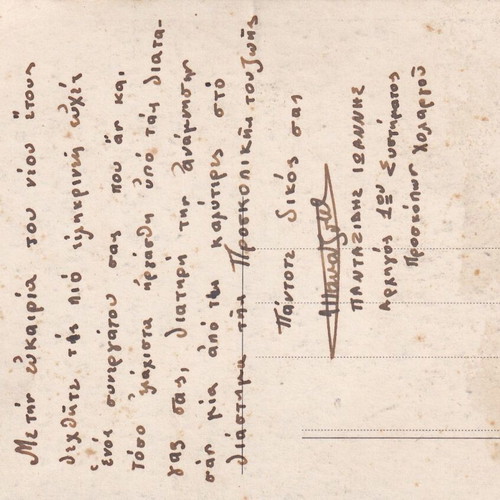 Με τήν εὐκαιρία του νίου ἔτους
δεχθῆτε τῆς πιό εἰλικρινῆ εὐχές
ἑνός συνεργάτου σας που ἄν και
τόσο ἐλάχιστα ἠργάσθη ὑπό τάς διατα-
γας σας, διατηρη την ἀνάμνησην
σάν μία ἀπό της καλύτερες στό
διάστημα τῆς Προσκοπικῆς του ζωῆς
Πάντοτε δικός σας
ΠΑΝΤΑΖΙΔΗΣ ΙΩΑΝΝΗΣ
Ἀρχηγός 1ου Συστήματος
Προσκόπων Χολαργοῦ